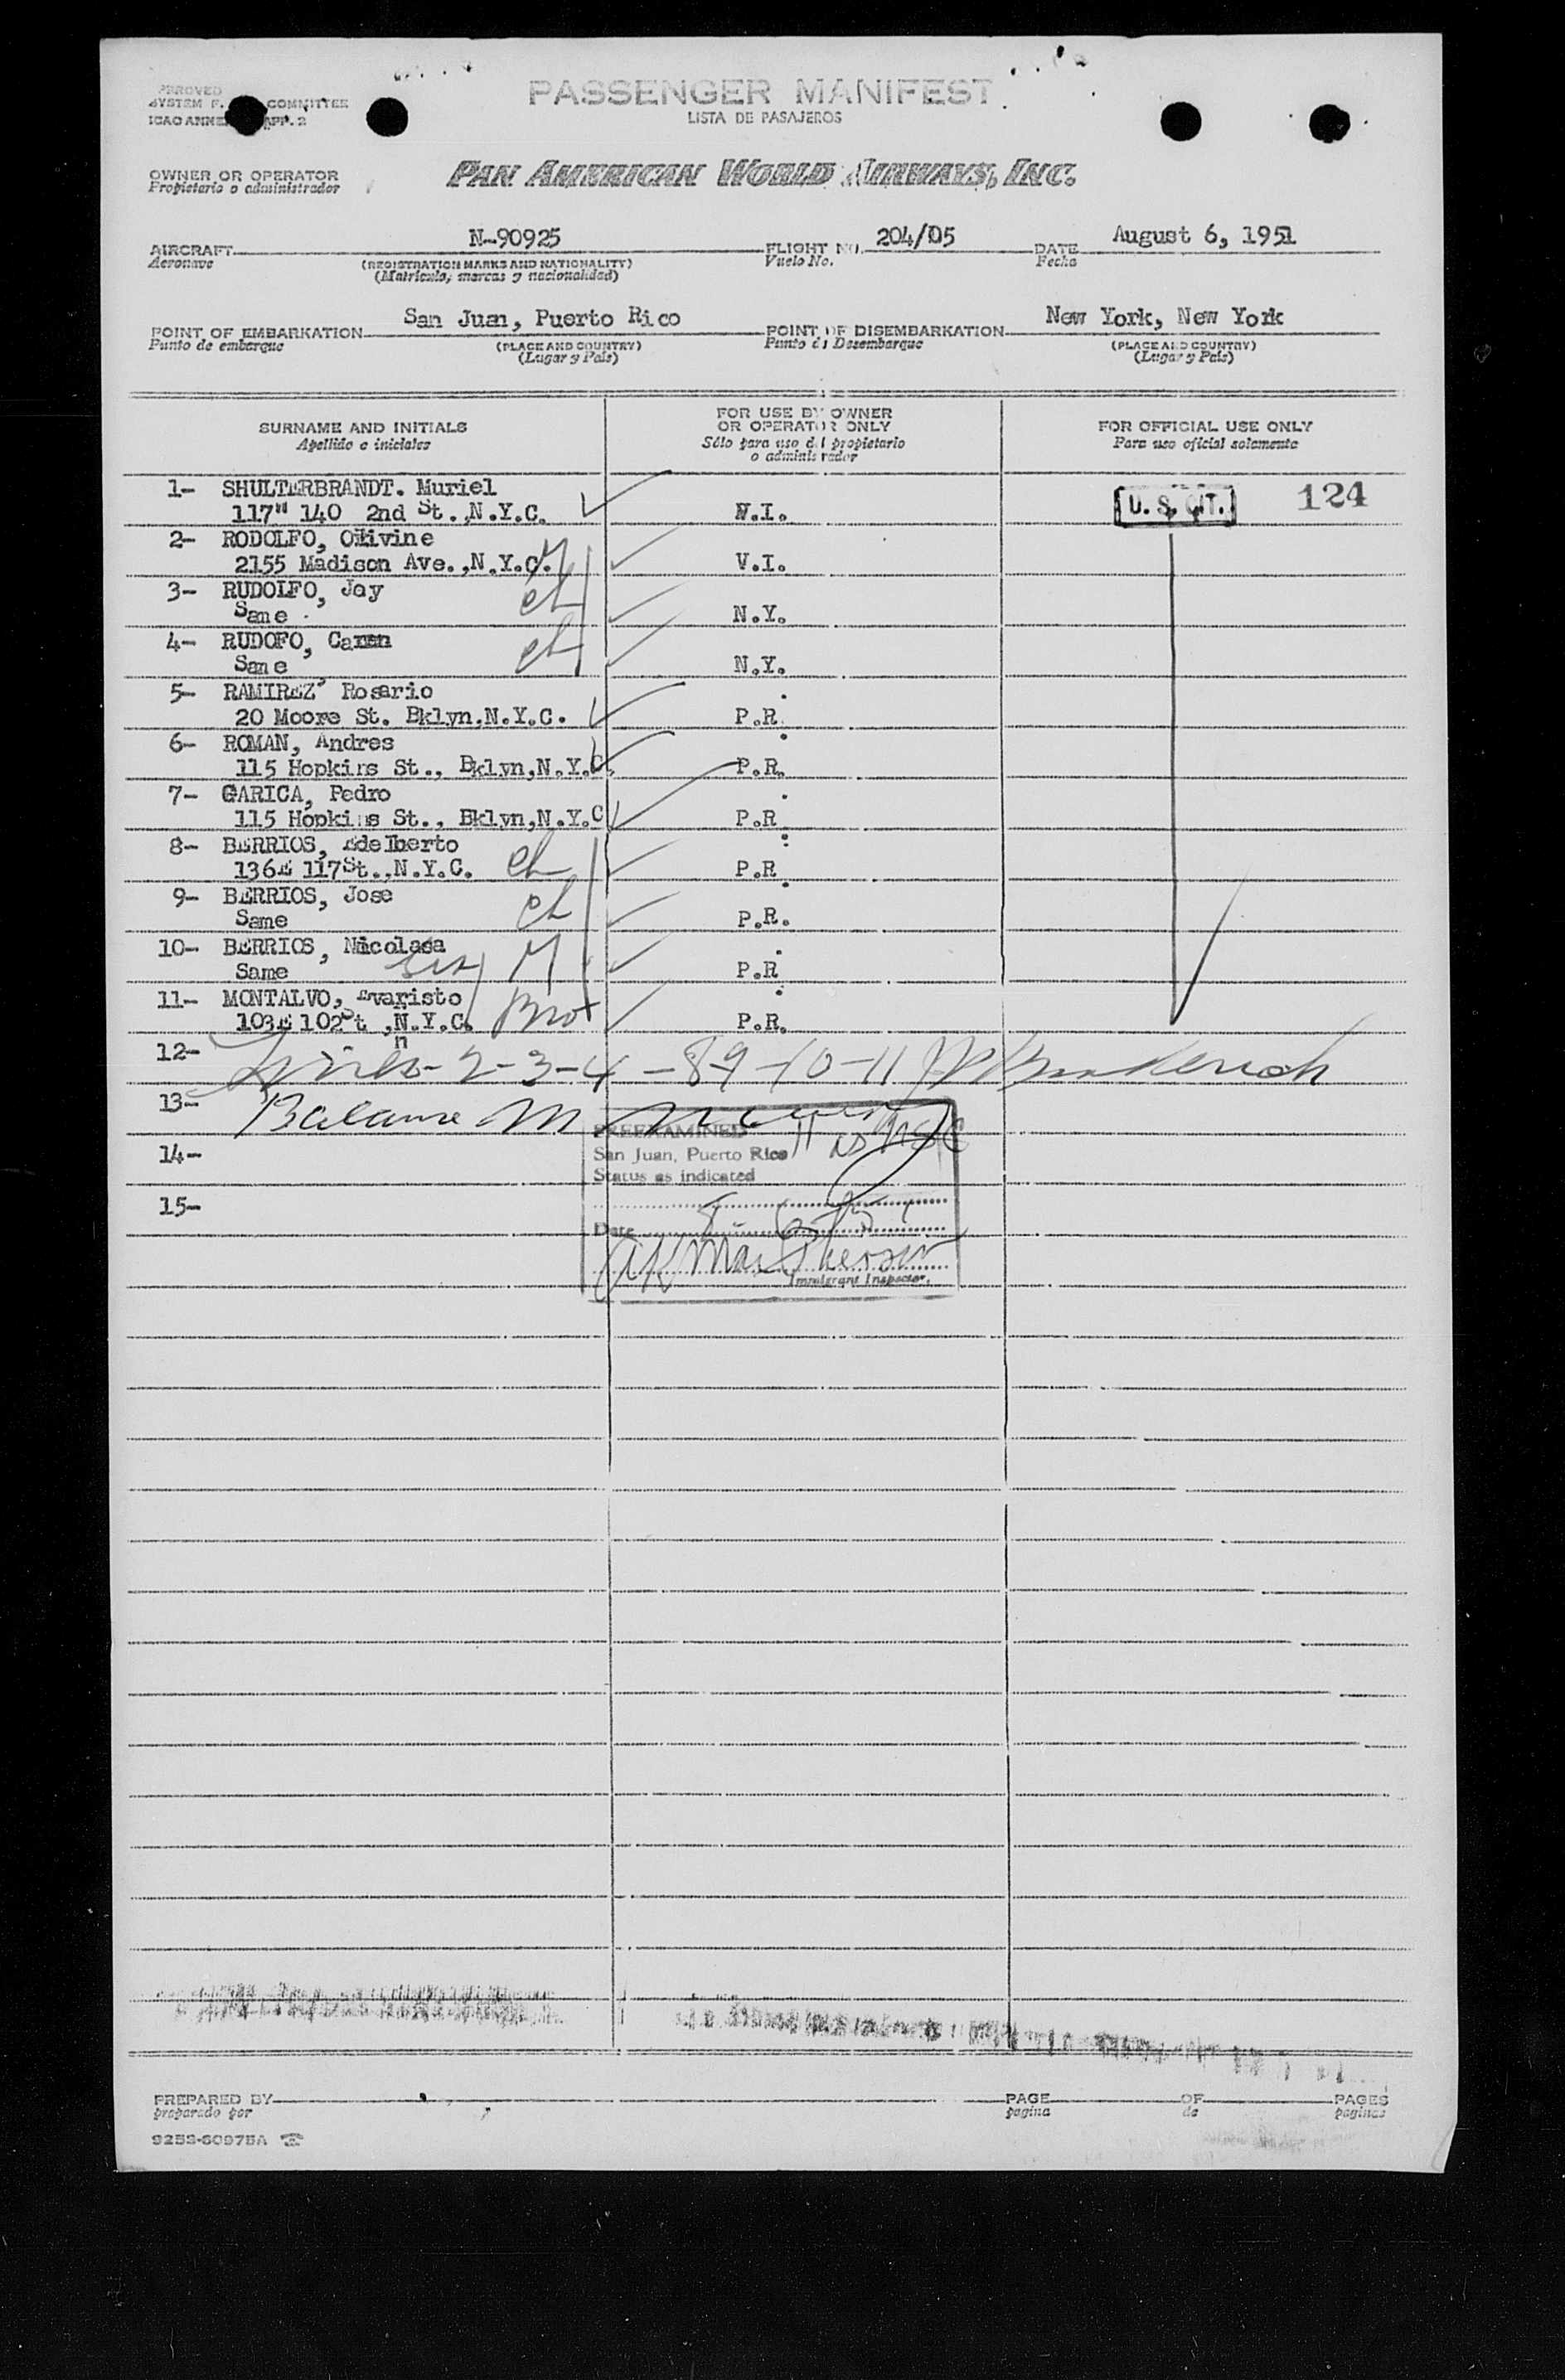 PASSENGER MANIFEST
LISTA DE PASAJEROS
SYSTEM F. COMMITTEE
ICAO ANNE APP. 2
OWNER OR OPERATOR
Propietario o administrador
PAN AMERICAN WORLD AIRWAYS, INC.
AIRCRAFT N-90925 FLIGHT NO. 204/05 DATE August 6, 1951
Aeronave (REGISTRATION MARKS AND NATIONALITY) Vuelo No. Fecha
(Matricula, marcas y nacionalidad)
POINT OF EMBARKATION San Juan, Puerto Rico POINT OF DISEMBARKATION New York, New York
Punto de embarque (PLACE AND COUNTRY) Punto de Desembarque (PLACE AND COUNTRY)
(Lugar y Pais) (Lugar y Pais)
SURNAME AND INITIALS FOR USE BY OWNER OR OPERATOR ONLY FOR OFFICIAL USE ONLY
Apellido e iniciales Sólo para uso del propietario o administrador Para uso oficial solamente
1- SHULTERBRANDT. Muriel
117" 140 2nd St.,N.Y.C. V.I. U. S. CIT. 124
2- RODOLFO, Olivine
2155 Madison Ave.,N.Y.C. M V.I.
3- RUDOLFO, Jay
Same ch N.Y.
4- RUDOFO, Caren
Same ch N.Y.
5- RAMIREZ Rosario
20 Moore St. Bklyn.N.Y.C. P.R.
6- ROMAN, Andres
115 Hopkins St., Bklyn,N.Y.C. P.R.
7- GARICA, Pedro
115 Hopkins St., Bklyn,N.Y.C P.R.
8- BERRIOS, Edelberto
136E 117St.,N.Y.C. ch P.R.
9- BERRIOS, Jose
Same ch P.R.
10- BERRIOS, Nicolasa
Same M P.R.
11- MONTALVO, Evaristo
103E 102St ,N.Y.C. Bro P.R.
12- Lines- 2-3-4-8-9-10-11
13- Balance
PREEXAMINED 11
San Juan, Puerto Rico
14-
Status as indicated
15-
Date
Immigrant Inspector.
PREPARED BY PAGE OF PAGES
preparado por pagina de paginas
9253-60975A